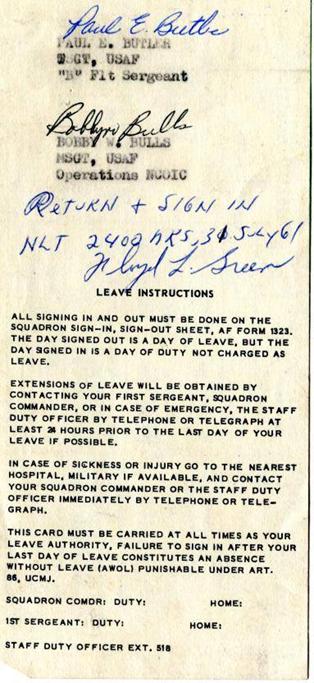 Paul E. Butler
PAUL E. BUTLER
TSGT, USAF
"B" Flt Sergeant
Bobby W Bulls
BOBBY W. BULLS
MSGT, USAF
Operations NCOIC
RETURN + SIGN IN
NLT 2400 HRS, 31 July 61
Floyd L. Green
LEAVE INSTRUCTIONS
ALL SIGNING IN AND OUT MUST BE DONE ON THE
SQUADRON SIGN-IN, SIGN-OUT SHEET, AF FORM 1323.
THE DAY SIGNED OUT IS A DAY OF LEAVE, BUT THE
DAY SIGNED IN IS A DAY OF DUTY NOT CHARGED AS
LEAVE.
EXTENSIONS OF LEAVE WILL BE OBTAINED BY
CONTACTING YOUR FIRST SERGEANT, SQUADRON
COMMANDER, OR IN CASE OF EMERGENCY, THE STAFF
DUTY OFFICER BY TELEPHONE OR TELEGRAPH AT
LEAST 24 HOURS PRIOR TO THE LAST DAY OF YOUR
LEAVE IF POSSIBLE.
IN CASE OF SICKNESS OR INJURY GO TO THE NEAREST
HOSPITAL, MILITARY IF AVAILABLE, AND CONTACT
YOUR SQUADRON COMMANDER OR THE STAFF DUTY
OFFICER IMMEDIATELY BY TELEPHONE OR TELE-
GRAPH.
THIS CARD MUST BE CARRIED AT ALL TIMES AS YOUR
LEAVE AUTHORITY, FAILURE TO SIGN IN AFTER YOUR
LAST DAY OF LEAVE CONSTITUTES AN ABSENCE
WITHOUT LEAVE (AWOL) PUNISHABLE UNDER ART.
86, UCMJ.
SQUADRON COMDR: DUTY: HOME:
1ST SERGEANT: DUTY: HOME:
STAFF DUTY OFFICER EXT. 518